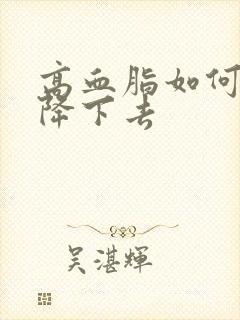 高血脂如何
降下去
吴湛輝